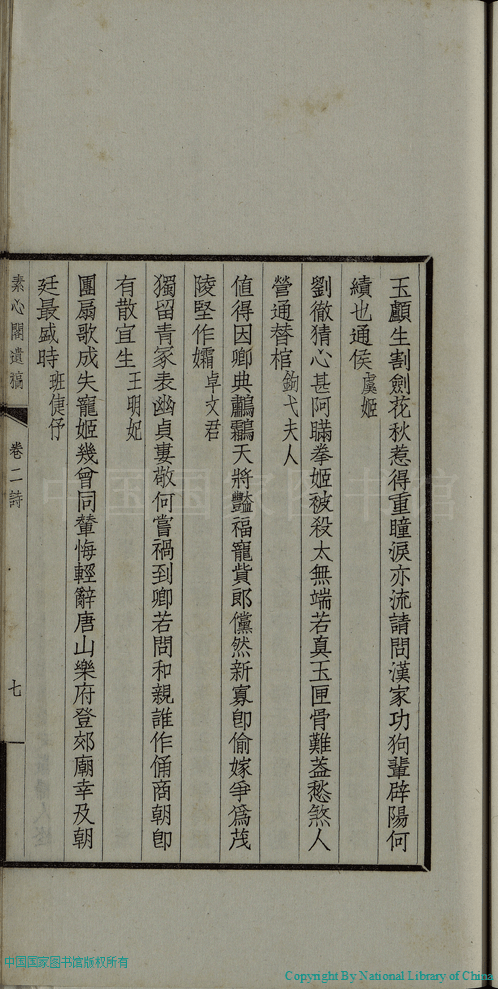 玉顱生割劍花秋惹得重瞳淚亦流請問漢家功狗輩辟陽何
績也通侯 虞姬
劉徹猜心甚阿瞞拳姬被殺太無端若真玉匣骨難葢愁煞人
營通替棺 鉤弋夫人
值得因卿典鷫鸘天將豔福寵貲郎儻然新寡卽偷嫁爭爲茂
陵堅作孀 卓文君
獨留青冢表幽貞婁敬何嘗禍到卿若問和親誰作俑商朝卽
有散宜生 王明妃
團扇歌成失寵姬幾曾同輦悔輕辭唐山樂府登郊廟幸及朝
廷最盛時 班倢伃
素心閣遺稿 卷二詩 七
中国国家图书馆
中国国家图书馆版权所有
Copyright By National Library of China